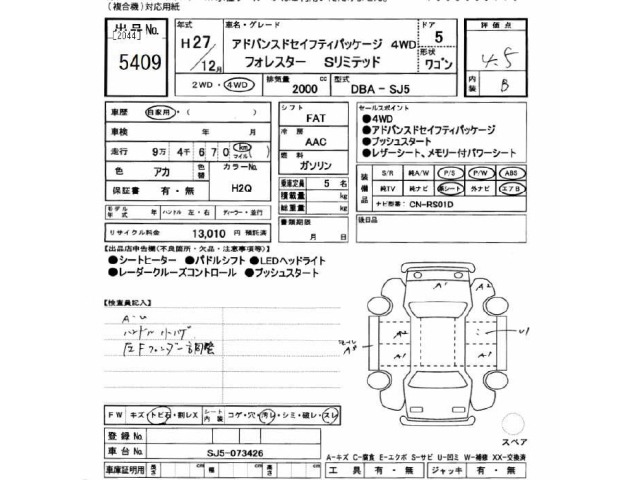 (複合機)対応用紙
出品No.
[2044]
5409
年式
H27/12月
車名・グレード
アドバンスドセイフティパッケージ 4WD
フォレスター Sリミテッド
ドア
5
形状
ワゴン
評価点
4.5
内装
B
2WD・4WD
排気量
2000 cc
型式
DBA-SJ5
車歴 自家用・( )
車検 年 月
走行 9万 4千 670 km マイル
色 アカ
色替
カラーNo.
H2Q
保証書 有・無
シフト
FAT
冷房
AAC
燃料
ガソリン
乗車定員 5 名
積載量 kg
総重量 kg
書類期限
月 日
セールスポイント
●4WD
●アドバンスドセイフティパッケージ
●プッシュスタート
●レザーシート、メモリー付パワーシート
装備品
S/R 純A/W P/S P/W ABS
純TV 純ナビ 革シート 外ナビ エアB
ナビ型番: CN-RS01D
後日品
モデル年式 年 ハンドル 左・右 ディーラー・並行
リサイクル料金 13,010 円 預託済
【出品店申告欄(不良箇所・欠品・注意事項等)】
●シートヒーター ●パドルシフト ●LEDヘッドライト
●レーダークルーズコントロール ●プッシュスタート
【検査員記入】
A-U
A1
A2
A1
U1
FW キズ・トビ石・割レX
シート内装 コゲ・穴・汚レ・シミ・破レ・スレ
登録No.
車台No. SJ5-073426
車庫証明用 長さ cm 幅 cm 高さ cm
スペア
A-キズ C-腐食 E-エクボ S-サビ U-凹ミ W-補修 XX-交換済
工具 有・無 ジャッキ 有・無